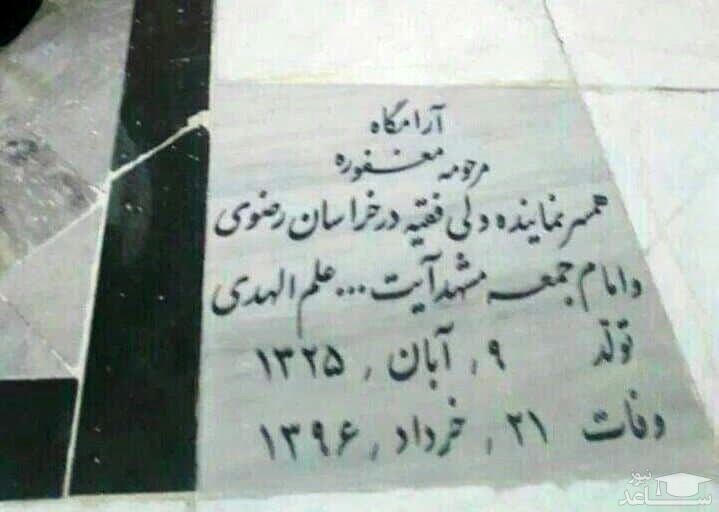 آرامگاه
مرحومه مغفوره
همسر نماینده ولی فقیه در خراسان رضوی
و امام جمعه مشهد آیت ... علم الهدی
تولد ۹ , آبان , ۱۳۲۵
وفات ۲۱ , خرداد , ۱۳۹۶
ساعد نیوز